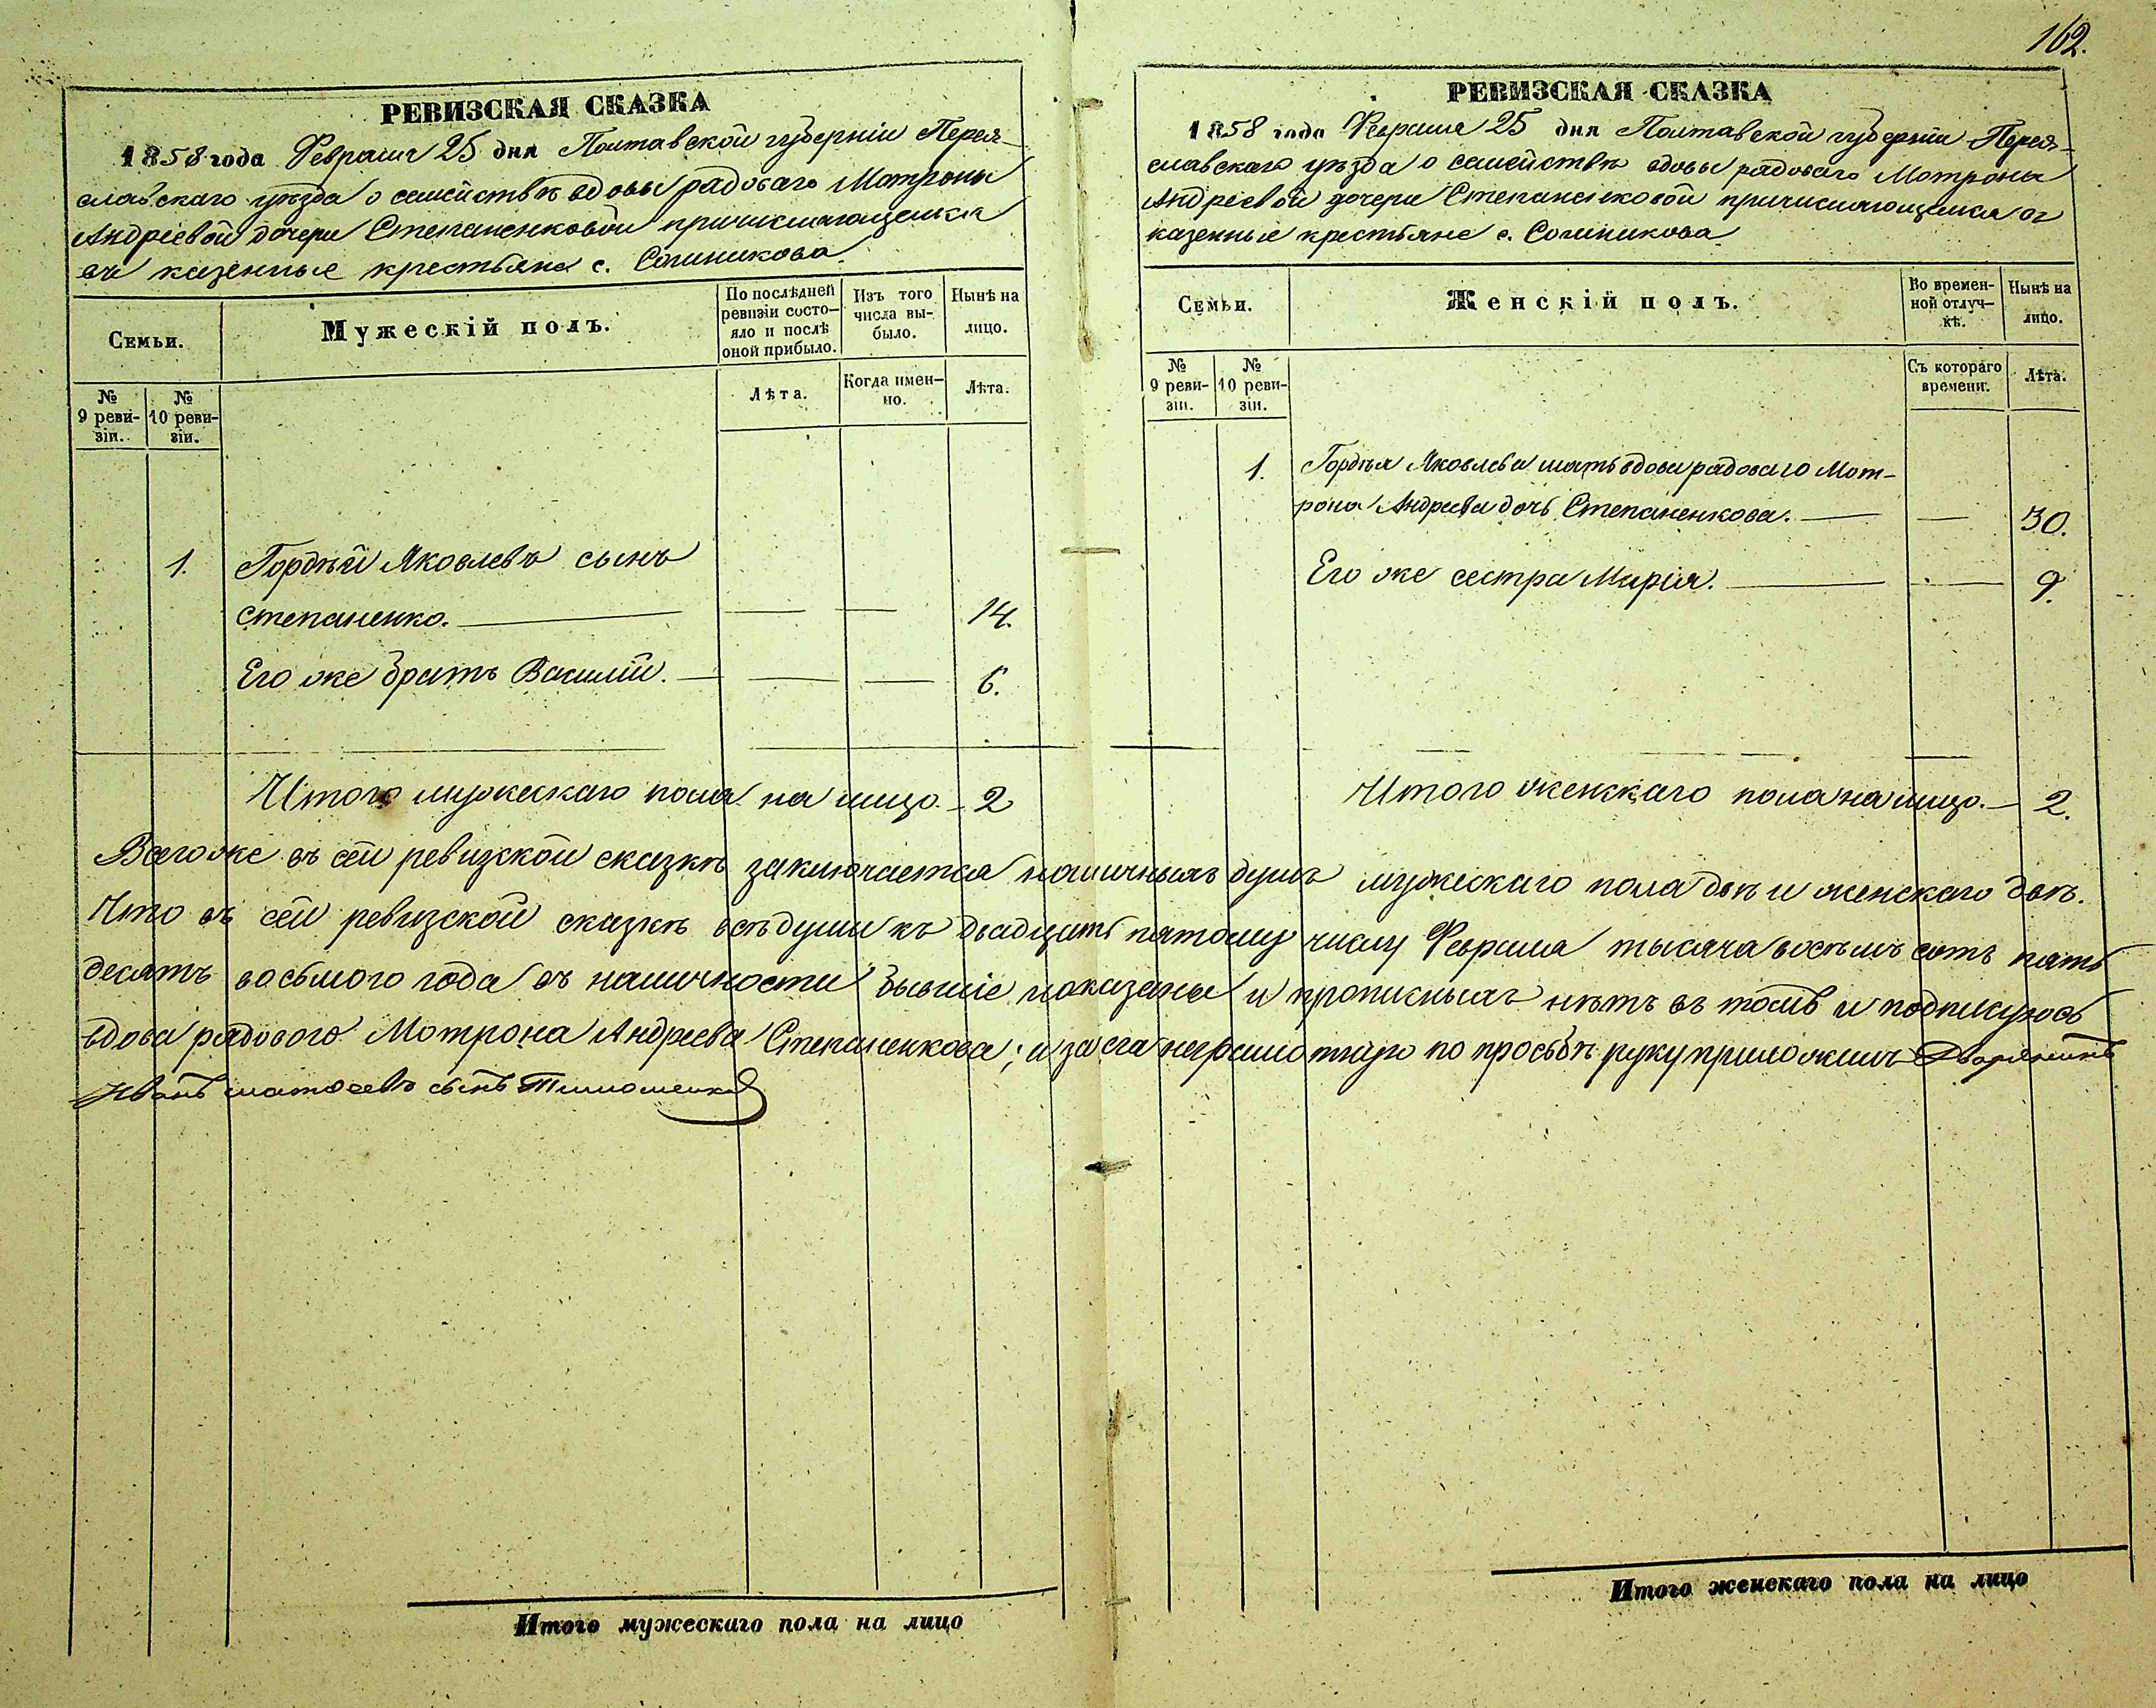 162.
РЕВИЗСКАЯ СКАЗКА
1858 года Февраля 25 дня Полтавской губерніи Перея-
славскаго уѣзда о семействѣ вдовы рядоваго Мотроны
Андріевой дочери Степаненковой причисляющемся
въ казенные крестьяне с. Сошникова.
Семьи.
Мужескій полъ.
По послѣдней ревизіи состо-
яло и послѣ оной прибыло.
Изъ того числа вы-
было.
Нынѣ на лицо.
№ 9 реви-
зіи.
№ 10 реви-
зіи.
Лѣта.
Когда имен-
но.
Лѣта.
1. Гордѣй Яковлевъ сынъ
Степаненко. — — — 14.
Его же братъ Василій. — — — 6.
Итого мужескаго пола на лицо — 2
РЕВИЗСКАЯ СКАЗКА
1858 года Февраля 25 дня Полтавской губерніи Перея-
славскаго уѣзда о семействѣ вдовы рядоваго Мотроны
Андріевой дочери Степаненковой причисляющемся въ
казенные крестьяне с. Сошникова
Семьи.
Женскій полъ.
Во времен-
ной отлуч-
кѣ.
Нынѣ на лицо.
№ 9 реви-
зіи.
№ 10 реви-
зіи.
Съ котораго времени.
Лѣта.
1. Гордѣя Яковлева мать вдова рядоваго Мот-
рона Андреева дочь Степаненкова. — — 30.
Его же сестра Марія. — — 9.
Итого женскаго пола на лицо. — 2.
Всего же въ сей ревизской сказкѣ заключается наличныхъ душъ мужескаго пола двѣ и женскаго двѣ.
Что въ сей ревизской сказкѣ всѣ души къ двадцать пятому числу Февраля тысяча восемь сотъ пять
десятъ восьмого года въ наличности бывшіе показаны и прописныхъ нѣтъ въ томъ и подписуюсь
вдова рядового Мотрона Андреева Степаненкова; а за ея неграмотную по просьбѣ руку приложилъ Дворянинъ
Иванъ матвеевъ сынъ Тимошенко
Итого мужескаго пола на лицо
Итого женскаго пола на лицо